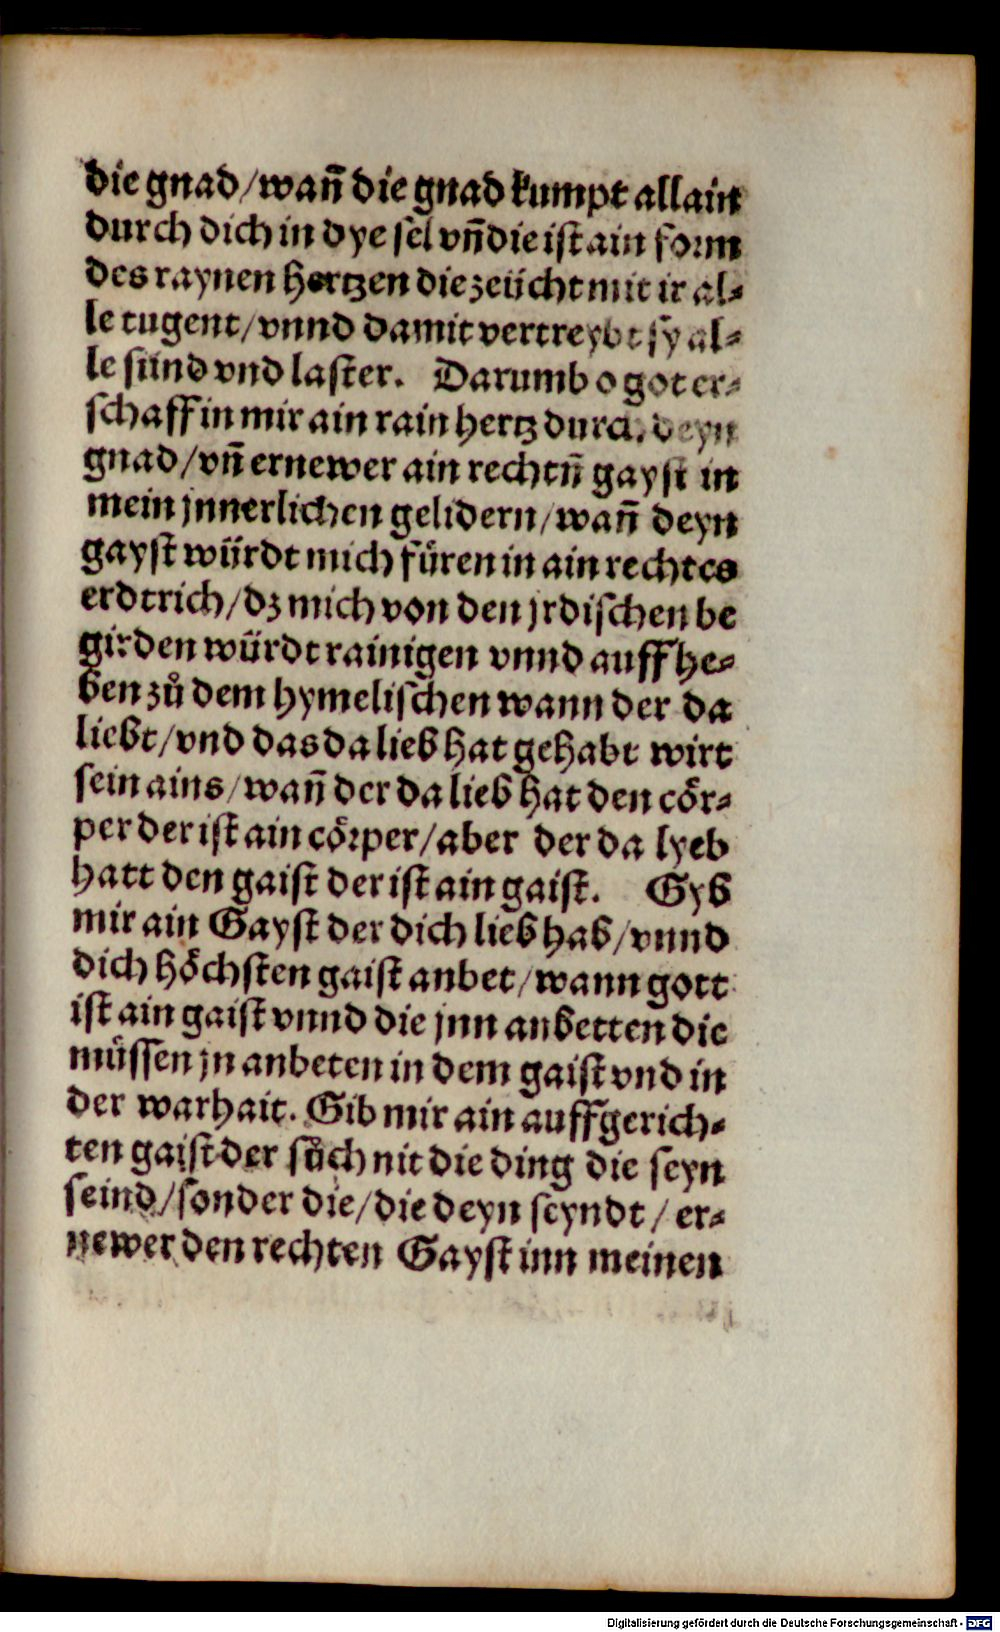 die gnad/wañ die gnad kumpt allain
durch dich in dye sel vñ die ist ain form
des raynen hertzen die zeücht mit ir al⸗
le tugent/vnnd damit vertreybt sy al⸗
le sünd vnd laster. Darumb o got er⸗
schaff in mir ain rain hertz durch deyn
gnad/vñ ernewer ain rechtñ gayst in
mein jnnerlichen gelidern/wañ deyn
gayst würdt mich füren in ain rechtes
erdtrich/dz mich von den jrdischen be
girden würdt rainigen vnnd auff he⸗
ben zů dem hymelischen wann der da
liebt/vnd das da lieb hat gehabt wirt
sein ains/wañ der da lieb hat den cör⸗
per der ist ain cörper/aber der da lyeb
hatt den gaist der ist ain gaist. Gyb
mir ain Gayst der dich lieb hab/vnnd
dich höchsten gaist anbet/wann gott
ist ain gaist vnnd die jnn anbetten die
müssen jn anbeten in dem gaist vnd in
der warhait. Gib mir ain auffgerich⸗
ten gaist der sůch nit die ding die seyn
seind/sonder die/die deyn seyndt/er⸗
newer den rechten Gayst inn meinen
Digitalisierung gefördert durch die Deutsche Forschungsgemeinschaft - DFG